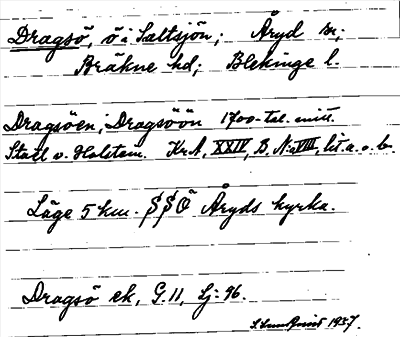 Dragsö, ö i Saltsjön; Åryd sn;
Bräkne hd; Blekinge l.
Dragsöen; Dragsöön 1700-tal. mitt.
Stael v. Holstein. KrA, XXIV, B, N:o VIII, lit a. o. b.
Läge 5 km. SSO Åryds kyrka.
Dragsö ek, G. 11, Lj: 96.
1927.